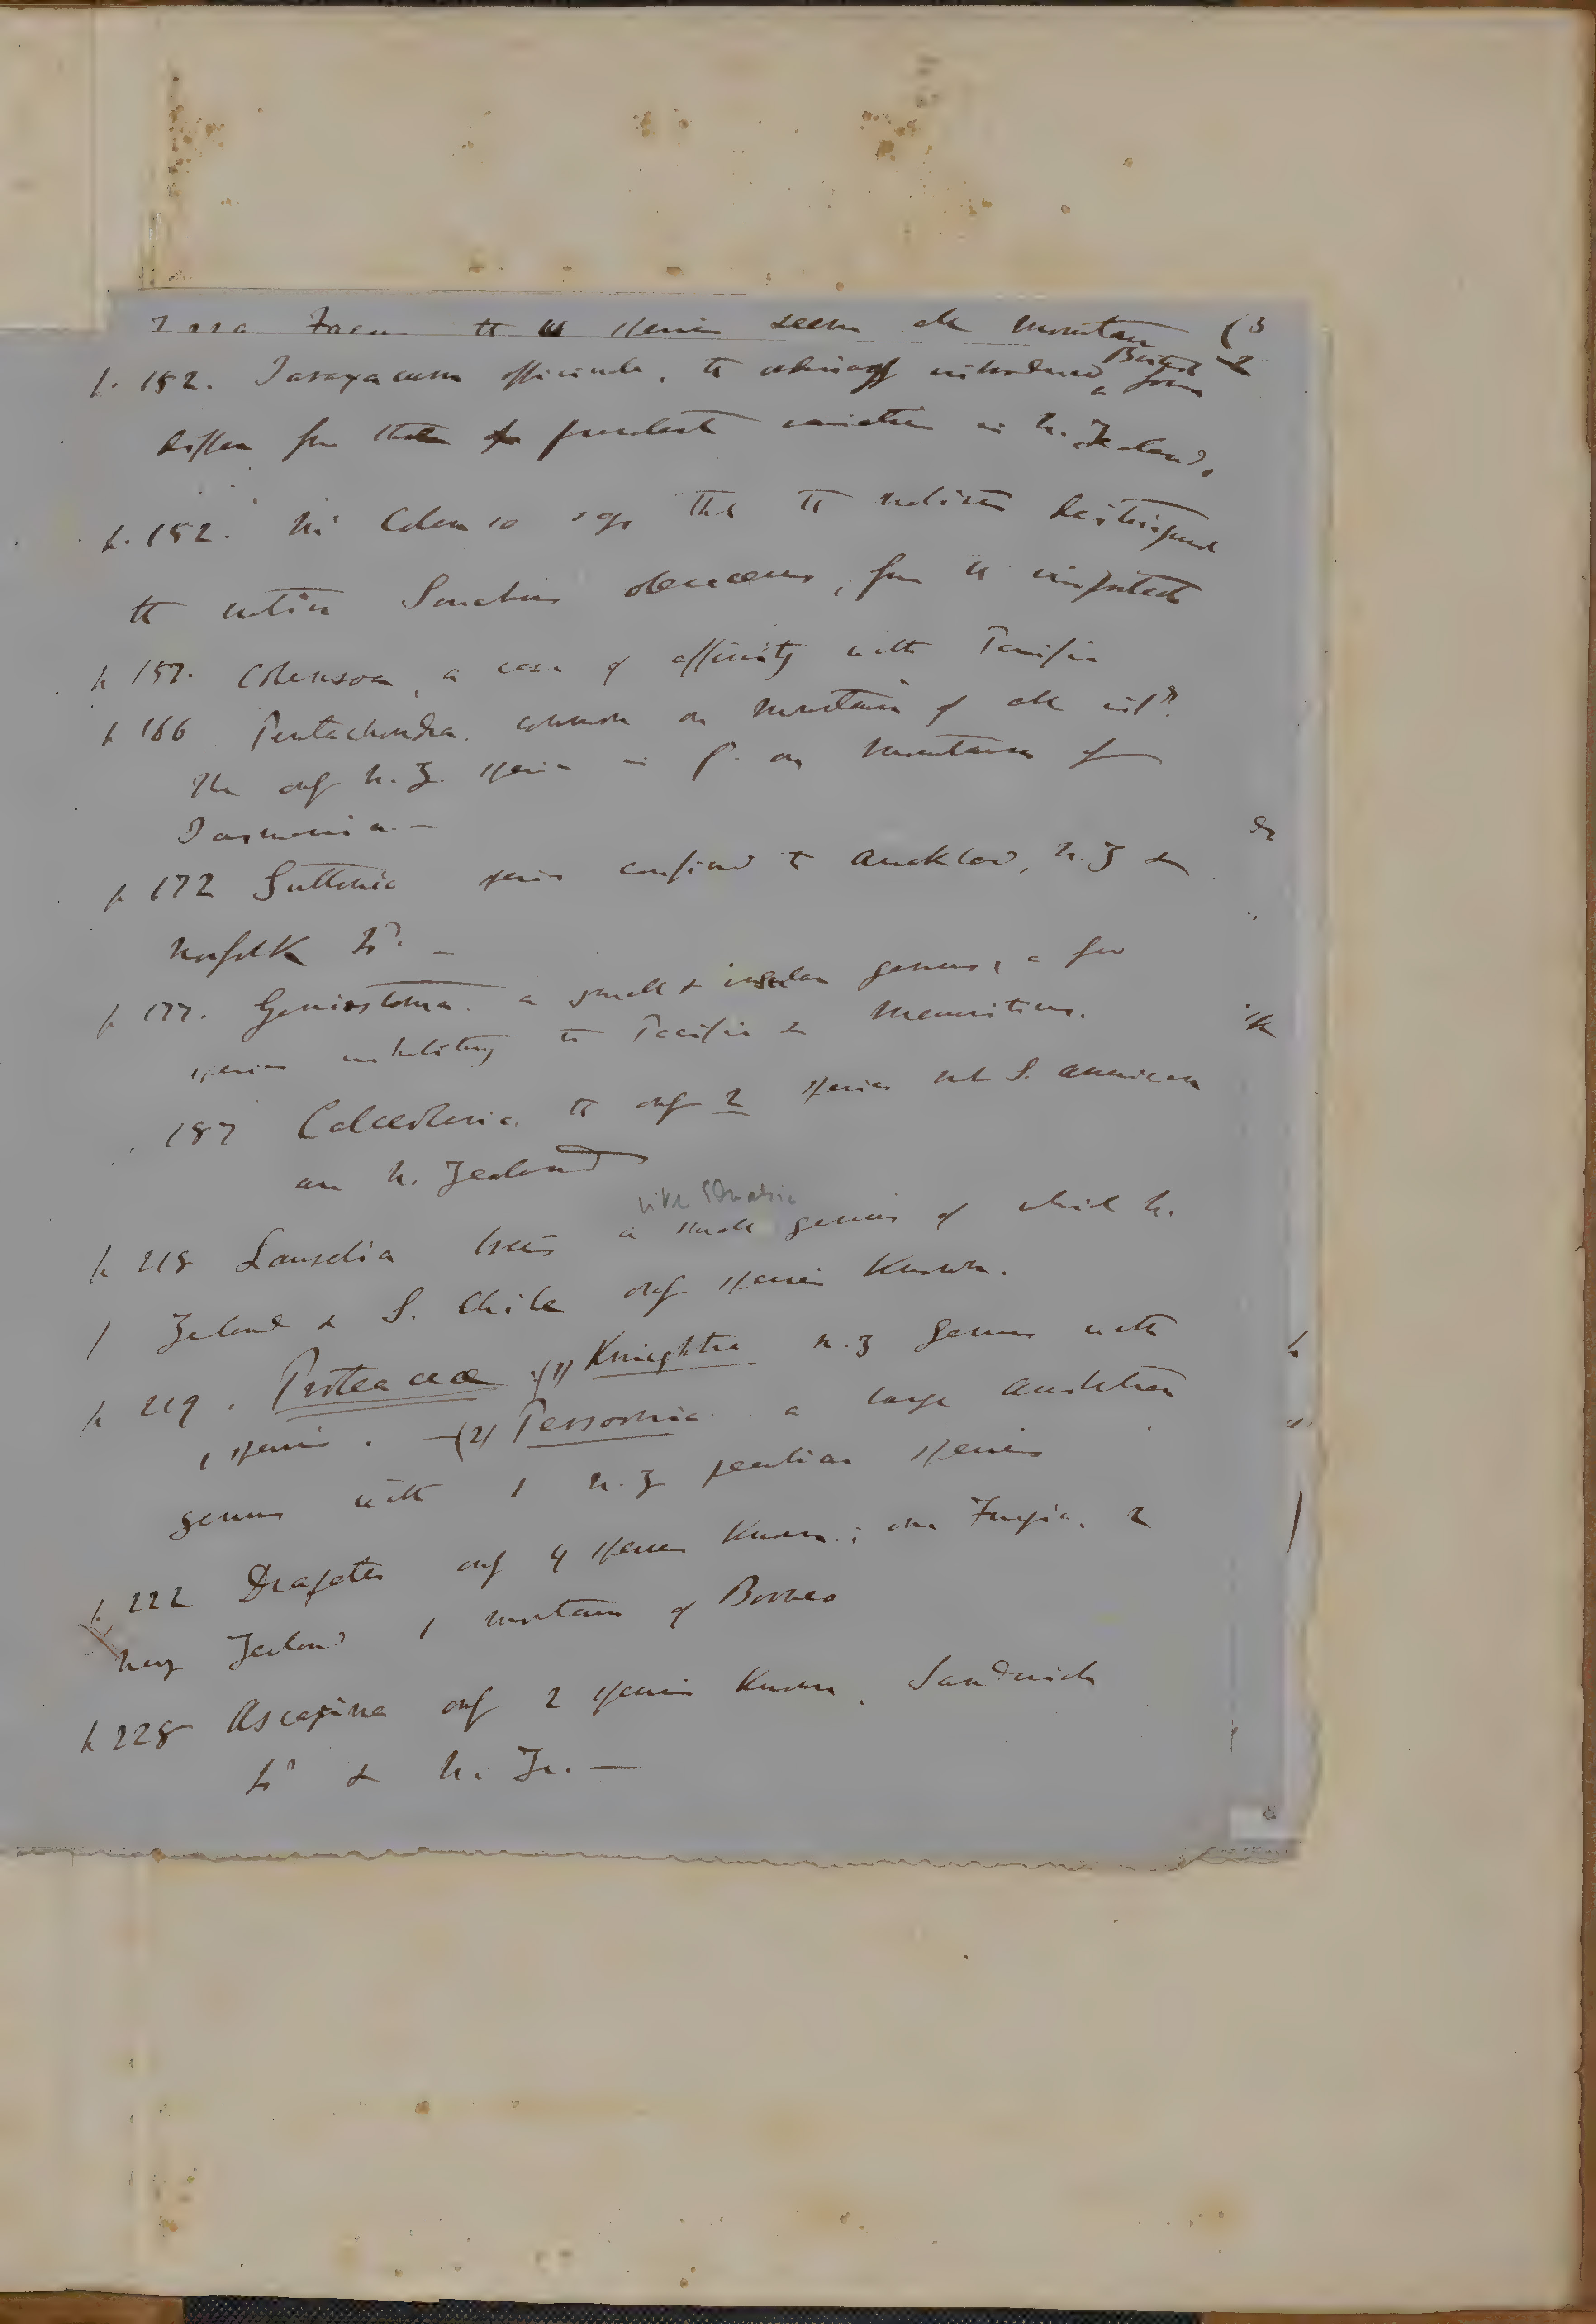 Fagu the species seem all mountain (3
p. 152. Taraxacum officinale, the obviously introduced British form &
differ from the prevalent varieties in N. Zealand.
p. 152. Mr Colenso says that the natives distinguish
the native Sonchus oleraceus, from the imported
p 157. Colensoa, a case of affinity with Pacific
p 166 Pentachondra. common on mountain of all isld.
The only N.Z. species is f. on mountains of
Tasmania. —
p 172 Suttonia genus confined to Auckland, N. Z &
Norfolk Isd. —
p. 177. Geniostoma. a small & insular genus, a few
species inhabiting the Pacific & Mauritius.
187 Calceolaria. the only 2 species not S. American
are N. Zealand
like Edwardsia
p 218 Laurelia trees a small genus of which N.
Zeland & S. Chile only species known.
p 219. Proteaceæ (1) Knightia N.Z genus with
1 species. — (2) Persoonia. a large Australian
genus with 1 N.Z peculiar species
p. 222 Drapetes only 4 species known; one Fuegia, 2
New Zealand 1 mountain of Borneo
p 228 Ascarina only 2 species known. Sandwich
Isd & N. Ze. —